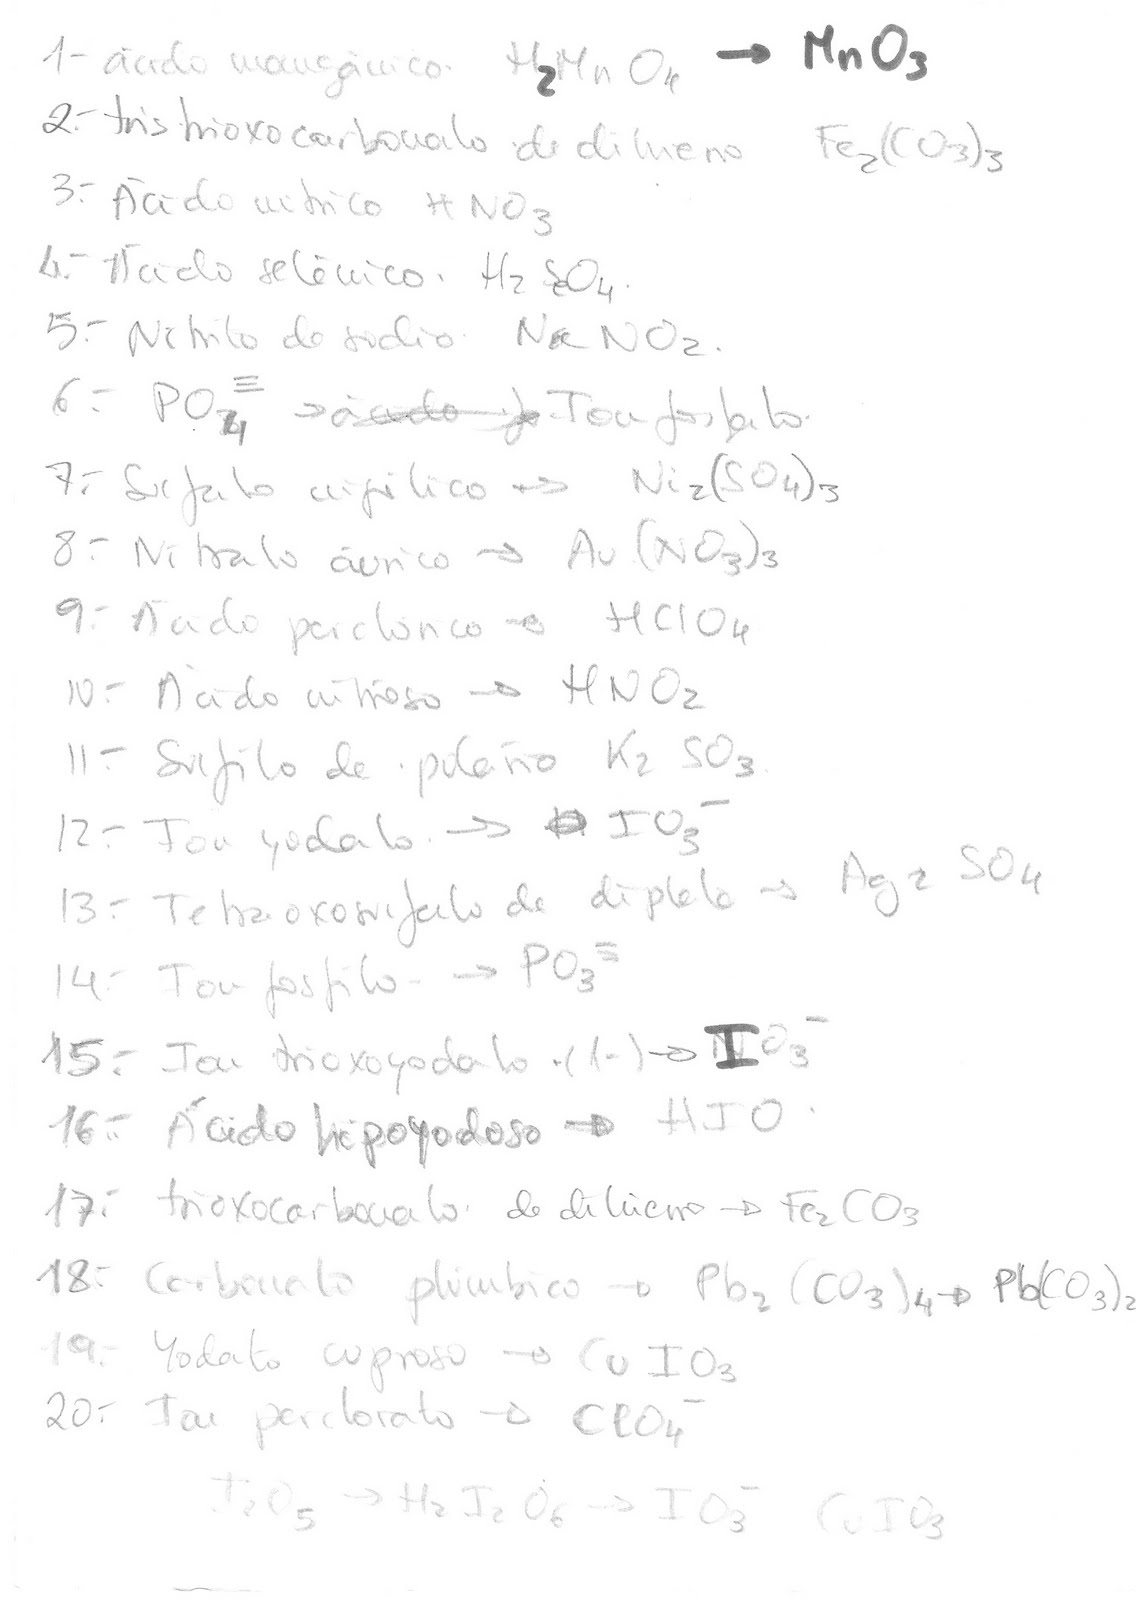 1- ácido mangánico. H₂MnO₄ → MnO₃
2.- tristrioxocarbonato de dihierro Fe₂(CO₃)₃
3.- Ácido nítrico HNO₃
4.- Ácido selénico. H₂SeO₄.
5.- Nitrito de sodio. NaNO₂.
6.- PO₄≡ → Ion fosfato.
7.- Sulfato niquélico → Ni₂(SO₄)₃
8.- Nitrato áurico → Au(NO₃)₃
9.- Ácido perclórico → HClO₄
10.- Ácido nitroso → HNO₂
11.- Sulfito de potasio K₂SO₃.
12.- Ion yodato. → IO₃⁻
13.- Tetraoxosulfato de diplata → Ag₂SO₄
14.- Ion fosfito. → PO₃≡
15.- Ion trioxoyodato (1-) → IO₃⁻
16.- Ácido hipoyodoso → HIO.
17.- trioxocarbonato de dihierro → Fe₂CO₃
18.- Carbonato plúmbico → Pb₂(CO₃)₄ → Pb(CO₃)₂
19.- Yodato cuproso → CuIO₃
20.- Ion perclorato → ClO₄⁻
I₂O₅ → H₂I₂O₆ → IO₃⁻ CuIO₃